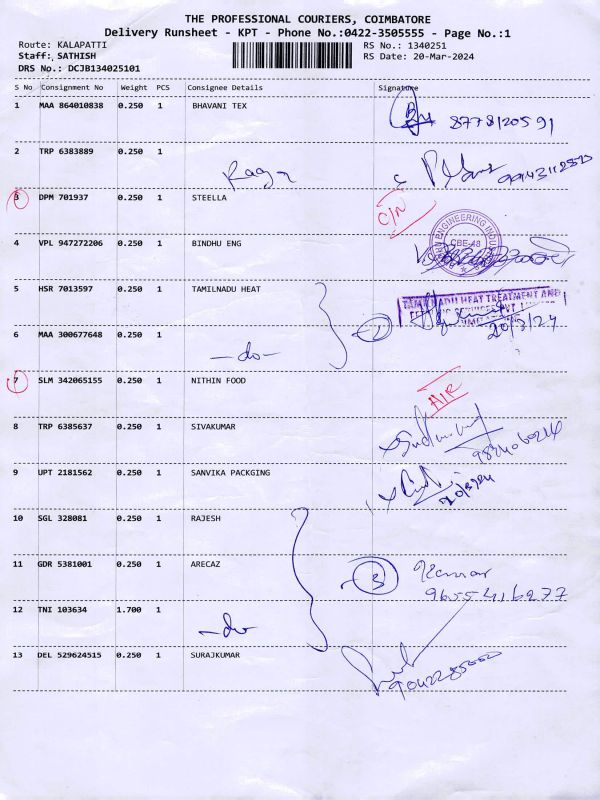 THE PROFESSIONAL COURIERS, COIMBATORE
Delivery Runsheet - KPT - Phone No.:0422-3505555 - Page No.:1
Route: KALAPATTI
RS No.: 1340251
Staff: SATHISH
RS Date: 20-Mar-2024
DRS No.: DCJB134025101
S No Consignment No Weight PCS Consignee Details Signature
1 MAA 864010838 0.250 1 BHAVANI TEX
8778120591
2 TRP 6383889 0.250 1
Raga
3 DPM 701937 0.250 1 STEELLA
C/N
4 VPL 947272206 0.250 1 BINDHU ENG
ENGINEERING
CBE-48
5 HSR 7013597 0.250 1 TAMILNADU HEAT
TAMILNADU HEAT TREATMENT AND
20/3/24
2
6 MAA 300677648 0.250 1
-do-
7 SLM 342065155 0.250 1 NITHIN FOOD
AIR
8 TRP 6385637 0.250 1 SIVAKUMAR
9 UPT 2181562 0.250 1 SANVIKA PACKGING
10 SGL 328081 0.250 1 RAJESH
11 GDR 5381001 0.250 1 ARECAZ
3
9655416277
12 TNI 103634 1.700 1
-do-
13 DEL 529624515 0.250 1 SURAJKUMAR